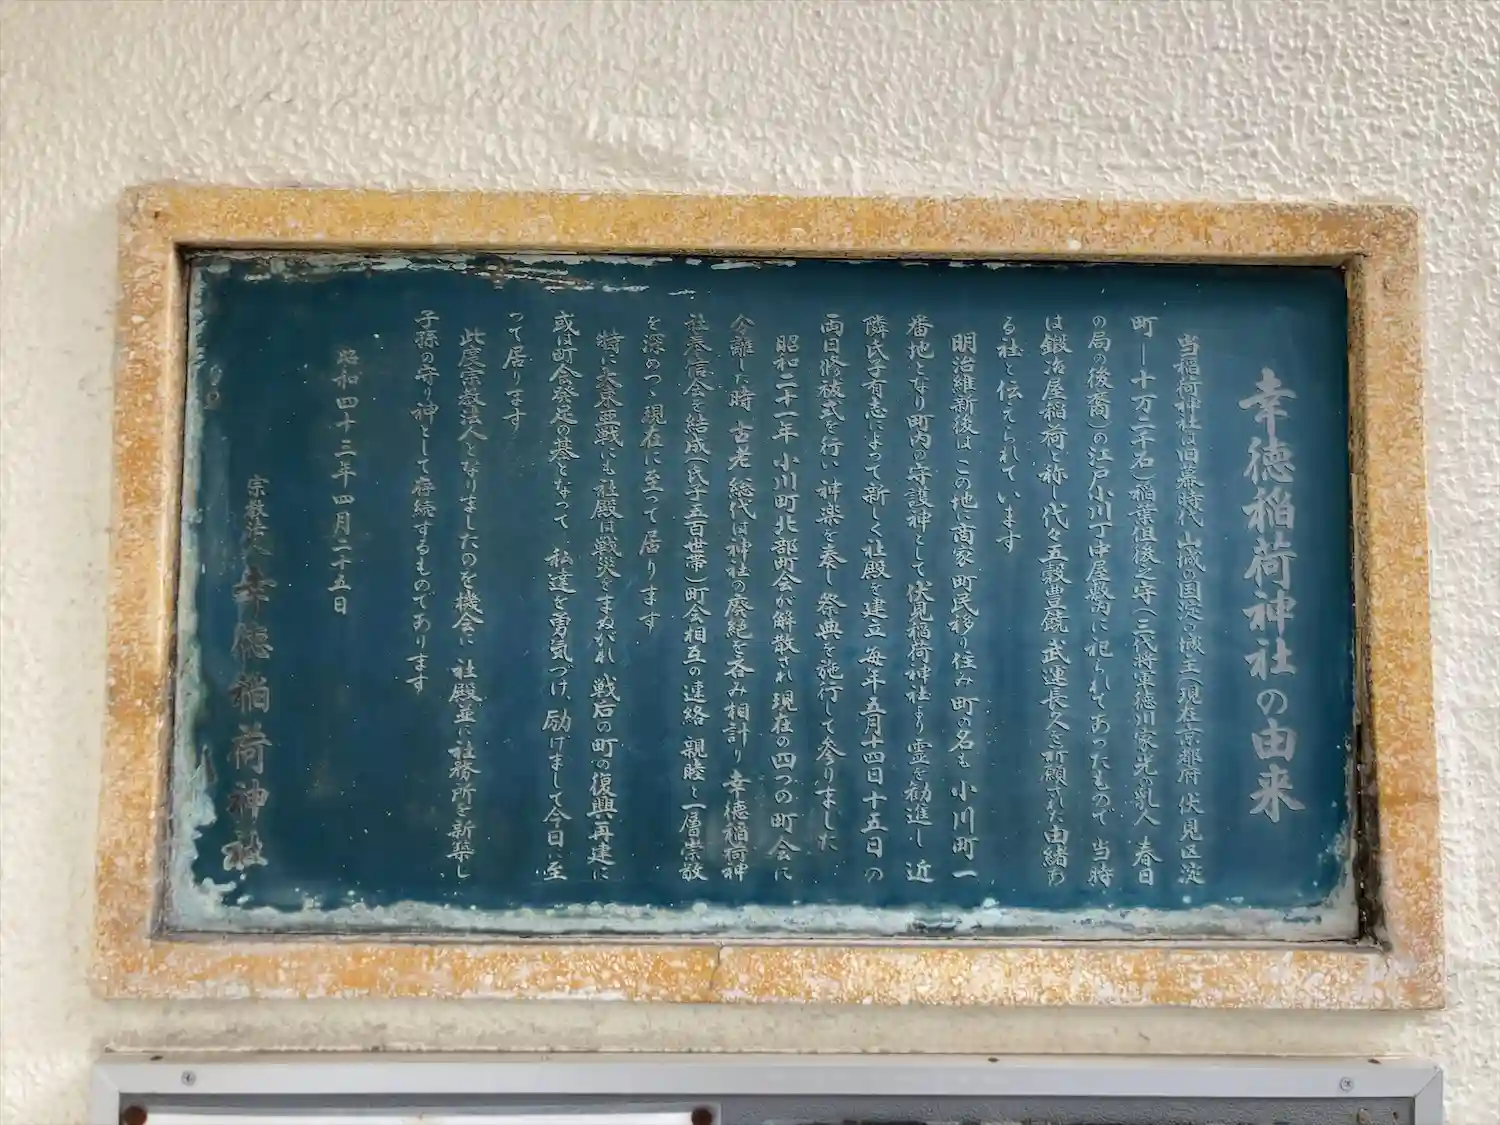 幸徳稲荷神社の由来
当稲荷神社は旧幕時代 山城の国淀の城主(現在京都府 伏見区淀
町―十万二千石)稲葉但後之守(三代将軍徳川家光の乳人 春日
の局の後裔)の江戸小川丁中屋敷内に祀られてあったもので 当時
は鍛冶屋稲荷と称し代々五穀豊饒 武運長久を祈願された由緒あ
る社と伝えられています
明治維新後は この地に商家 町民移り住み 町の名も 小川町一
番地となり町内の守護神として 伏見稲荷神社より霊を勧進し 近
隣氏子有志によって新しく社殿を建立 毎年五月十四日十五日の
両日修祓式を行い 神楽を奉し 祭典を施行して参りました
昭和二十一年 小川町北部町会が解散され 現在の四つの町会に
分離した時 古老 総代は神社の廃絶を吝み相計り 幸徳稲荷神
社奉信会を結成(氏子五百世帯)町会相互の連絡 親睦と一層崇敬
を深めつゝ現在に至って居ります
特に大東亜戦にも社殿は戦災をまぬがれ 戦后の町の復興再建に
或は町会発足の基となって 私達を勇気づけ 励げまして今日に至
って居ります
此度宗教法人となりましたのを機会に 社殿並に社務所を新築し
子孫の守り神として存続するものであります
昭和四十三年四月二十五日
宗教法人 幸徳稲荷神社